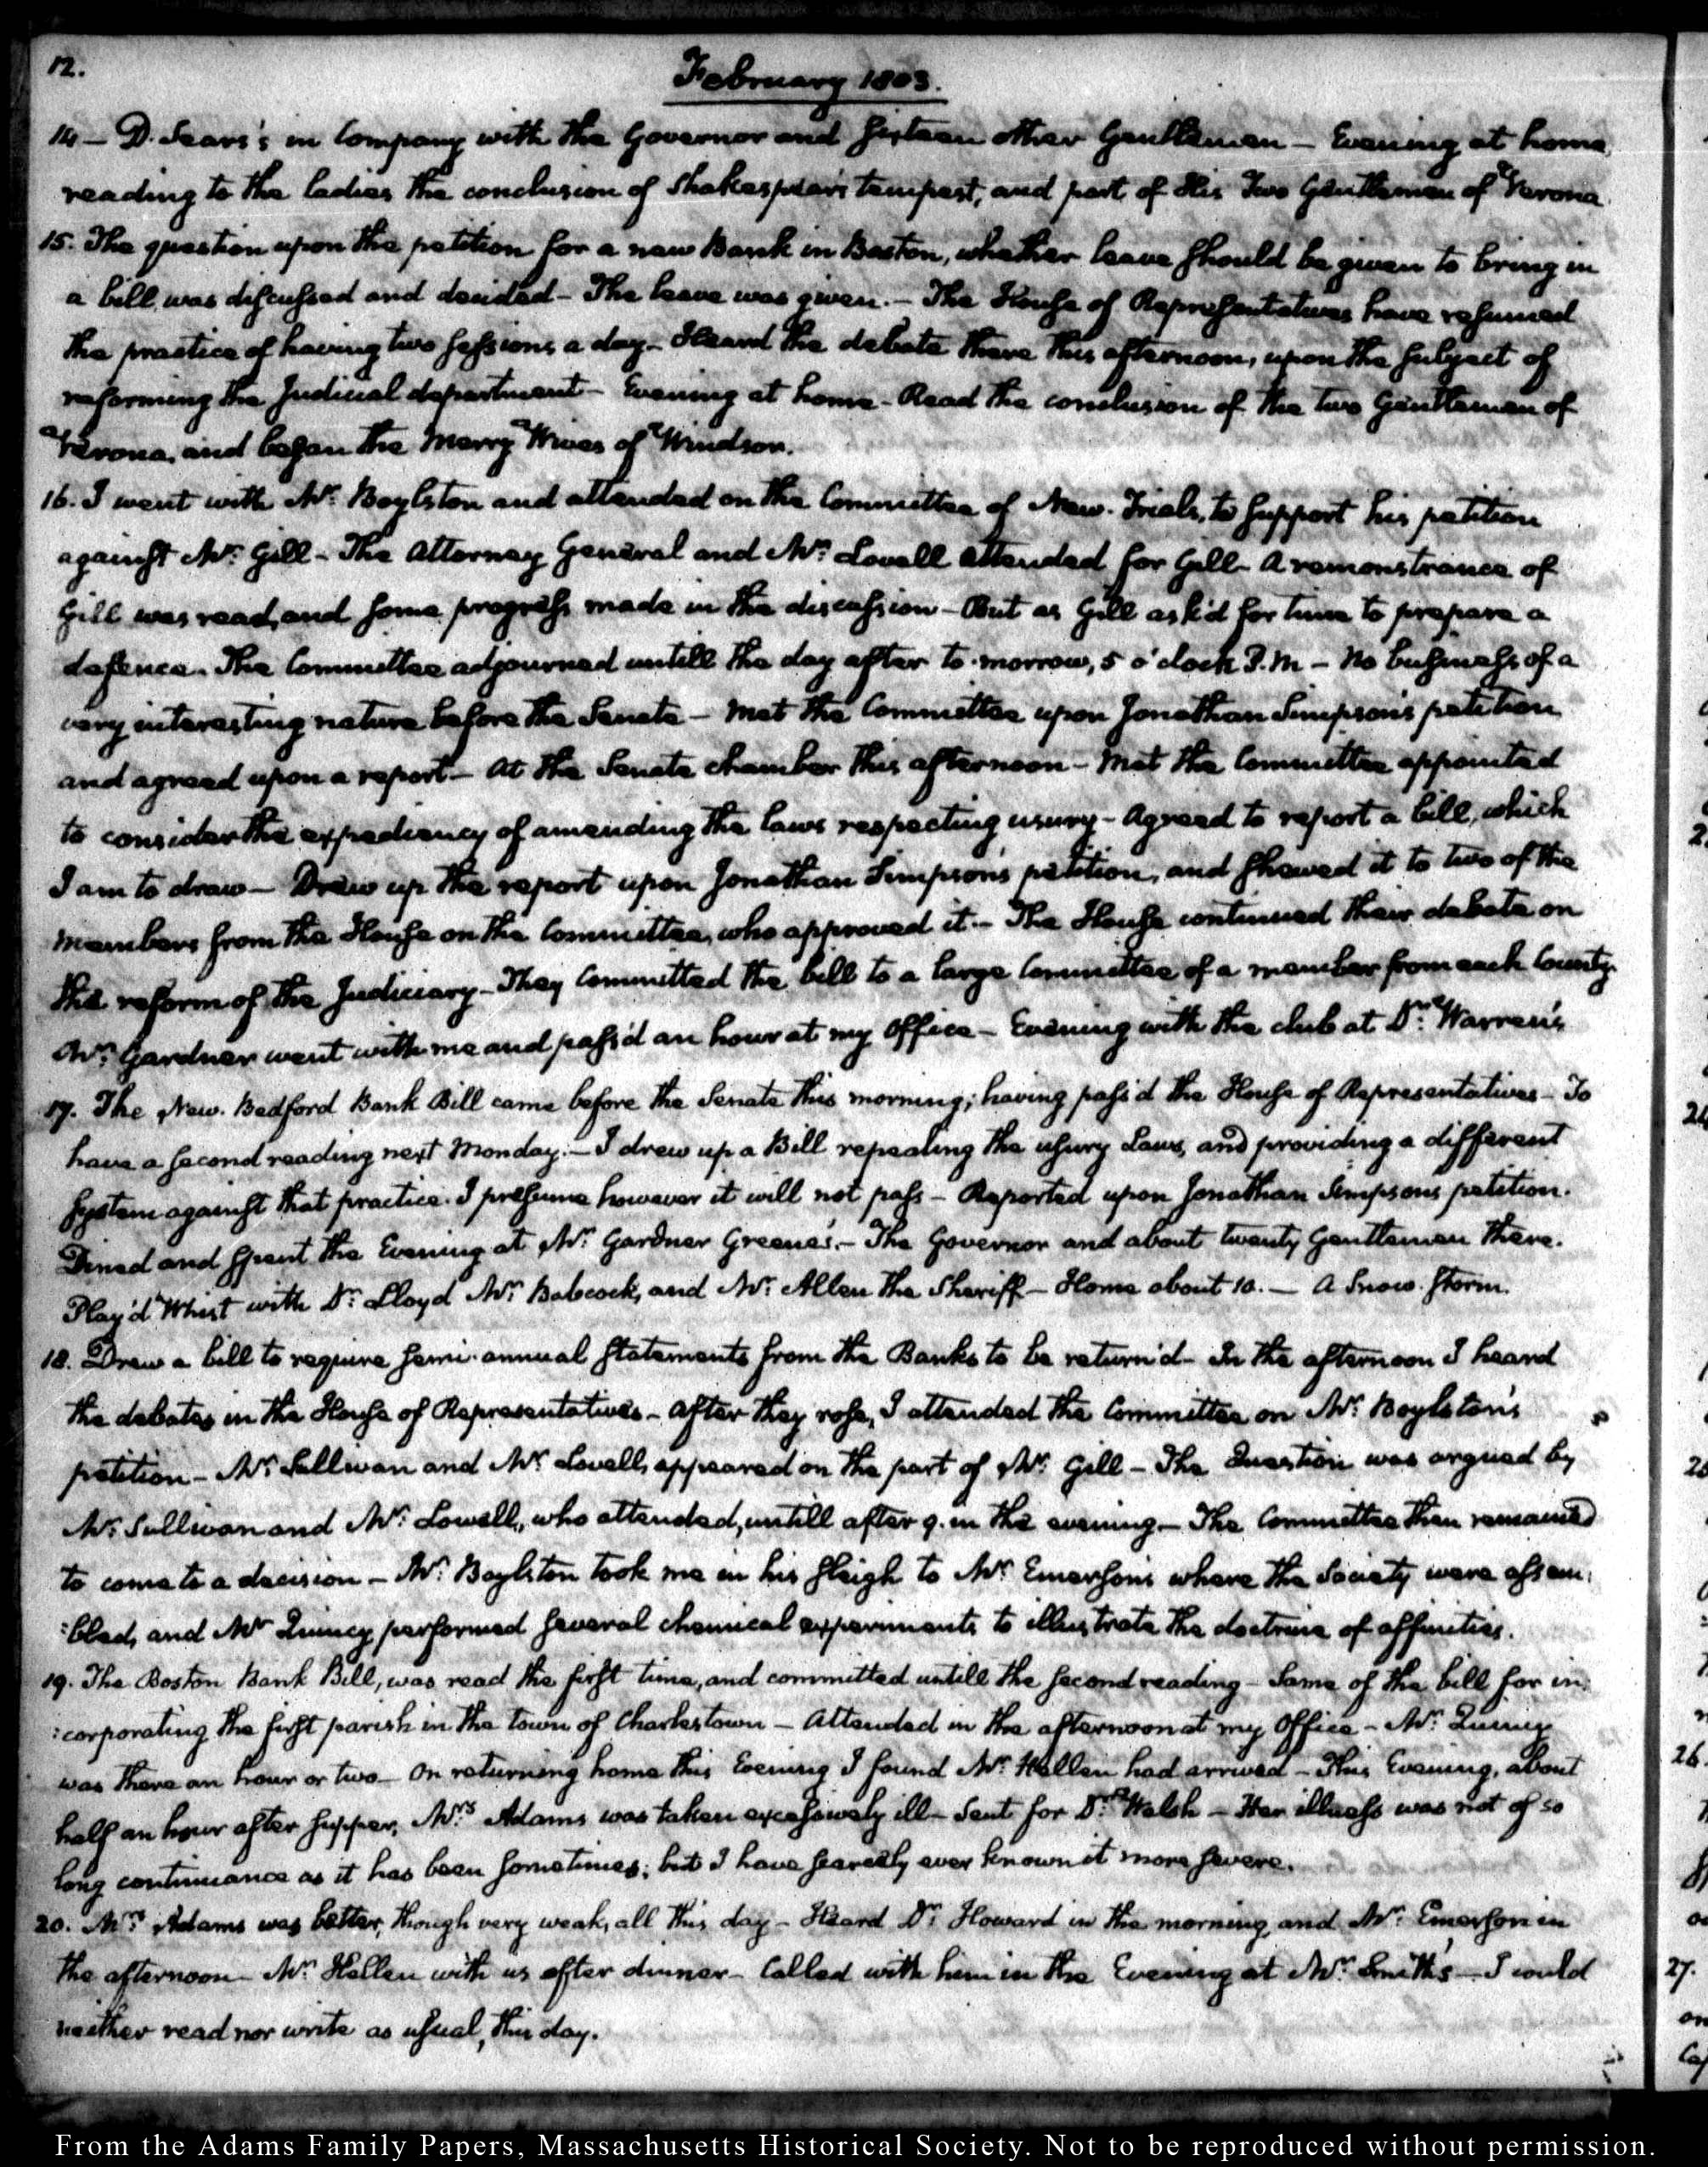 12.
February 1803.
14 — D. Sears's in Company with the Governor and sixteen other Gentlemen — Evening at home,
reading to the ladies the conclusion of Shakespear's tempest, and part of His Two Gentlemen of Verona.
15. The question upon the petition for a new Bank in Boston, whether leave should be given to bring in
a bill, was discussed and decided — The leave was given. — The House of Representatives have resumed
the practice of having two sessions a day — Heard the debate there this afternoon, upon the subject of
reforming the Judicial department — Evening at home — Read the conclusion of the two Gentlemen of
Verona, and began the Merry Wives of Windsor.
16. I went with Mr. Boylston and attended on the Committee of New-Trials, to support his petition
against Mr. Gill — The Attorney General and Mr. Lowell attended for Gill — A remonstrance of
Gill was read, and some progress made in the discussion — But as Gill ask'd for time to prepare a
defence. The Committee adjourned untill the day after to-morrow, 5 o'clock P.M — No business of a
very interesting nature before the Senate — Met the Committee upon Jonathan Simpson's petition
and agreed upon a report — At the Senate chamber this afternoon — Met the Committee appointed
to consider the expediency of amending the laws respecting usury — Agreed to report a bill, which
I am to draw — Drew up the report upon Jonathan Simpson's petition, and shewed it to two of the
members from the House on the Committee, who approved it. — The House continued their debate on
the reform of the Judiciary — They Committed the bill to a large Committee of a member from each County.
Mr. Gardner went with me and pass'd an hour at my Office — Evening with the club at Dr. Warren's
17. The New-Bedford Bank Bill came before the Senate this morning; having pass'd the House of Representatives — To
have a second reading next Monday. — I drew up a Bill repealing the usury Laws, and providing a different
system against that practice. I presume however it will not pass — Reported upon Jonathan Simpsons petition.
Dined and spent the Evening at Mr. Gardner Greene's. — The Governor and about twenty Gentlemen there.
Play'd Whist with Dr. Lloyd Mr. Babcock, and Mr. Allen the Sheriff — Home about 10. — A Snow-storm.
18. Drew a bill to require semi-annual statements from the Banks to be return'd — In the afternoon I heard
the debates in the House of Representatives — After they rose, I attended the Committee on Mr. Boylston's
petition — Mr. Sullivan and Mr. Lowell, appeared on the part of Mr. Gill — The Question was argued by
Mr. Sullivan and Mr. Lowell, who attended, untill after 9. in the evening — The Committee then remained
to come to a decision — Mr. Boylston took me in his sleigh to Mr. Emerson's where the Society were assem:
:bled, and Mr. Quincy performed several chemical experiments to illustrate the doctrine of affinities.
19. The Boston Bank Bill, was read the first time, and committed untill the second reading — Same of the bill for in:
:corporating the first parish in the town of Charlestown — Attended in the afternoon at my Office — Mr. Quincy
was there an hour or two — On returning home this Evening I found Mr. Hellen had arrived — This Evening, about
half an hour after supper, Mrs. Adams was taken excessively ill — Sent for Dr. Welsh — Her illness was not of so
long continuance as it has been sometimes; but I have scarcely ever known it more severe.
20. Mrs. Adams was better, though very weak, all this day — Heard Dr. Howard in the morning, and Mr. Emerson in
the afternoon — Mr. Hellen with us after dinner — Called with him in the Evening at Mr. Smith's — I could
neither read nor write as usual, this day.
26.
27.
From the Adams Family Papers, Massachusetts Historical Society. Not to be reproduced without permission.